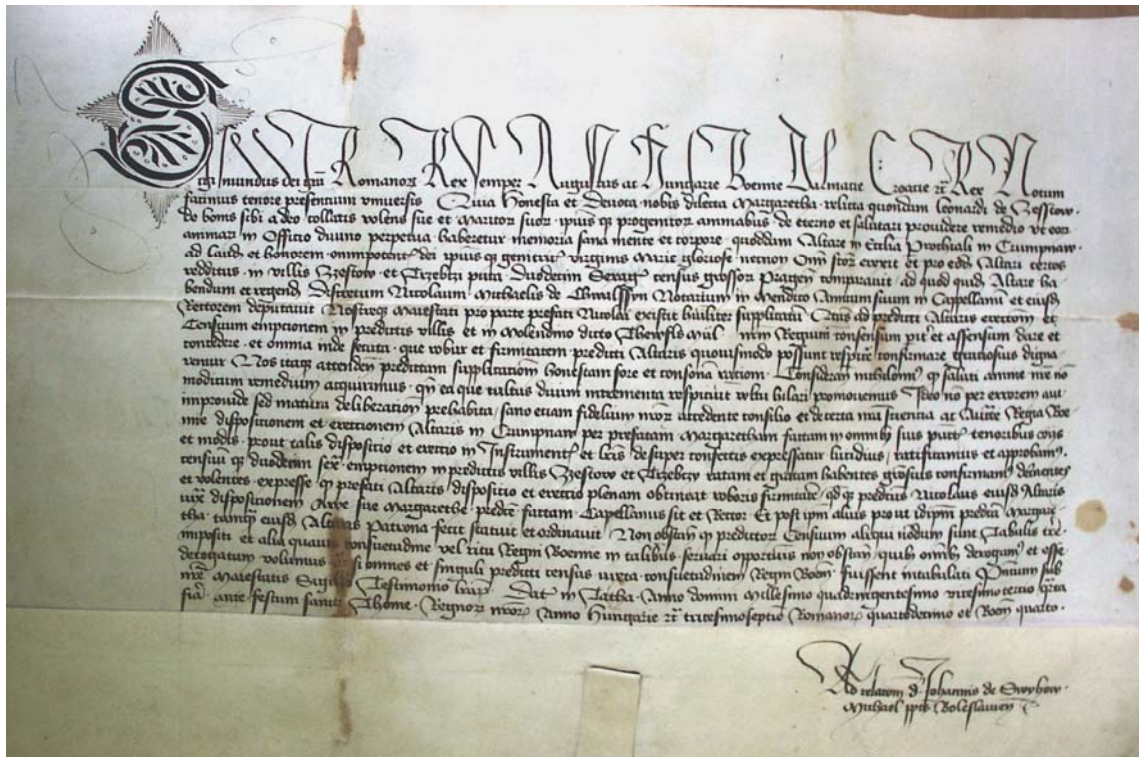 Sigismundus dei grã Romanorꝫ Rex semper Augustus ac Hungarie Boemie Dalmacie Croacie ꝛc̃ Rex Notum
facimus tenore presentium vniuersis Quia honesta et Deuota nobis dilecta Margaretha relicta quondam leonardi de
de bonis sibi a deo collatis volens sue et Maritor suor ipius qꝫ progenitor animabus de eterno et salutari prouidere remedio vt eor
animar in Officio diuino perpetua haberetur memoria sana mente et corpore quoddam Altare in Ecclia prochiali in Crumpnaw
ad laudẽ et honorem omnipotentꝭ dei ipius qꝫ genitricꝭ virginis Marie gloriose necnon Oĩm scõr erexit Et pro eodẽ Altari certos
redditus in villis et puta Duodecim Sexagꝭ census grossor pragen comparauit ad quod quidẽ Altare ha
bendum et regendũ Discretum Nicolaum Michaelis de Notarium in Amitum suum in Capellanũ et eiusdꝫ
Rectorem deputauit Nostreqꝫ Maiestati pro parte prefati Nicolai existit hũiliter supplicatũ Qtus ad predicti Altaris erectionẽ et
Censuum empcionem in predictis villis et in Molendino dicto nrm Regium consensum pitꝭ et assensum dare et
concedere et omnia inde secuta que robur et firmitatem predicti Altaris quouismodo possunt respicꝭe confirmare graciosius digna
remur Nos itaqꝫ attendenꝭ predictam supplicacionẽ honestam fore et consonã racioni Consideranꝭ nichilominꝰ qꝫ saluti anime nrẽ nõ
modicum remedium acquirimus qñ ea que cultus diuini incrementa respiciunt voltu hilari promouemus Ideo nõ per errorem aut
improuide sed matura deliberacionẽ prehabita sano eciam fidelium nror accedente consilio et de certa nrã sciencia ac Auctẽ Regia Boe
mie disposicionem et ereccionem Altaris in Crumpnaw per prefatam Margaretham factam in omnibꝫ suis puntꝭ tenoribus
et modis prout talis disposicio et ereccio in Instrumentꝭ et lrĩs desuper confectis expressatur lucidius ratificamus et approbamꝰ
censuũ qꝫ duodecim sexꝭ empcionem in predictis villis et ratam et gratam habentes graciosius confirmamꝰ decernentes
et volentes expresse qꝫ prefati Altaris disposicio et ereccio plenam obtineat roboris firmitatẽ qd qꝫ predictus Nicolaus eiusdꝫ Altaris
iuxta disposicionem sue Margarethe predcẽ factam Capellanus sit et Rector Et post ipm alius prout idipm predcã Margare
tha tamqꝫ eiusdꝫ Altaris patrona fecit statuit et ordinauit Non obstanꝭ qꝫ predictor Censuum aliqui nondum sunt Tabulis trẽ
impositi et alia quauis consuetudine vel ritu Regni Boemie in talibus seruari oportuis non obstanꝭ quibꝫ omibꝫ derogamꝰ et esse
derogatum volumus si omnes et singuli predicti census iuxta consuetudinem Regni Boem fuissent intabulati pñtium sub
nrẽ Maiestatis Sigillo Testimonio lrar Datꝭ in Tatha Anno domini Millesimo quadringentesimo vicesimotercio qrta
feriã ante festum sancti Thome Regnor nror Anno Hungarie ꝛc̃ tricesimoseptimo Romanor quartodecimo et Boem quarto
Ad relacõem d Johannis de Swyhow
Michael ppõtꝭ Boleslauienꝭ